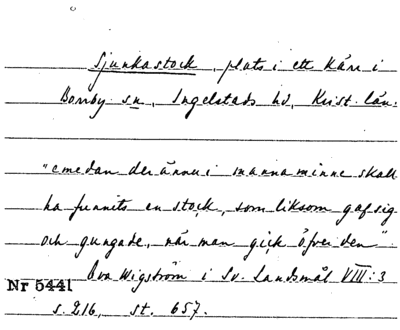 Sjunkastock, plats i ett kärr i
Borrby sn, Ingelstads hd, Krist. län.
"emedan der ännu i manna minne skall
ha funnits en stock, som liksom gaf sig
och gungade, når man gick öfver den"
Eva Wigström i Sv. Landsmål VIII:3
Nr 5441
s. 216, st. 657.